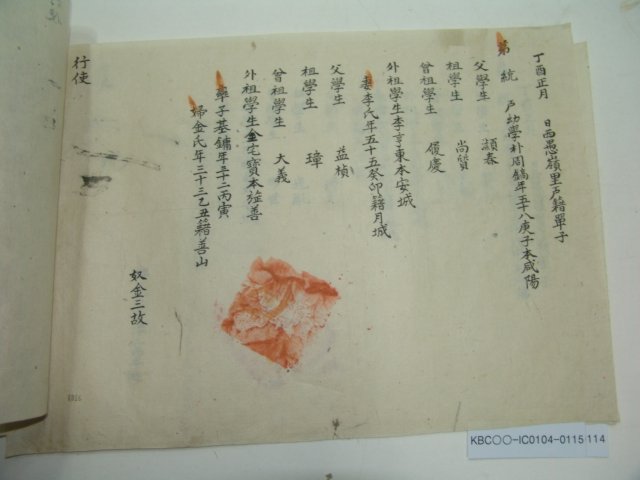 丁酉正月 日西愚嶺里戶籍單子
第 統 戶幼學朴周鎬年五十八庚子本咸陽
父學生 顯泰
祖學生 尚質
曾祖學生 履慶
外祖學生李亨東本安城
妻李氏年五十五癸卯籍月城
父學生 益楨
祖學生 璋
曾祖學生 大義
外祖學生金宅寶本旌善
率子基鏞年三十二丙寅
婦金氏年三十三乙丑籍善山
奴金三故
行使
KBC○○-IC0104-0115 114